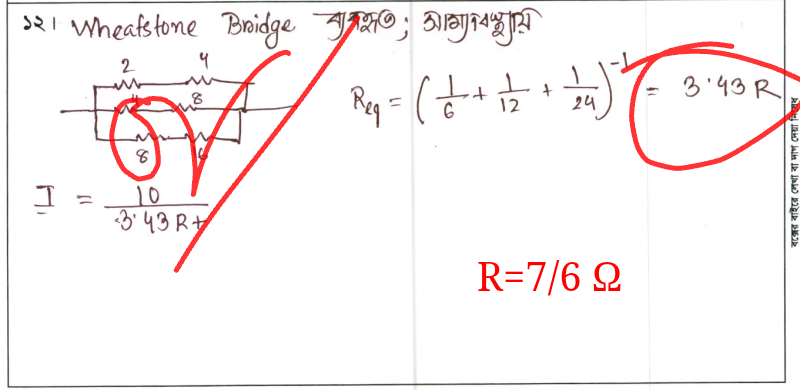 ১২। Wheatstone Bridge ব্যবহৃত; সাম্যাবস্থায়
2 4
4 8
8 16
Req = (1/6 + 1/12 + 1/24)⁻¹ = 3.43 R
I = 10 / 3.43 R +
R=7/6 Ω
বক্সের বাইরে লেখা বা দাগ দেয়া নিষেধ